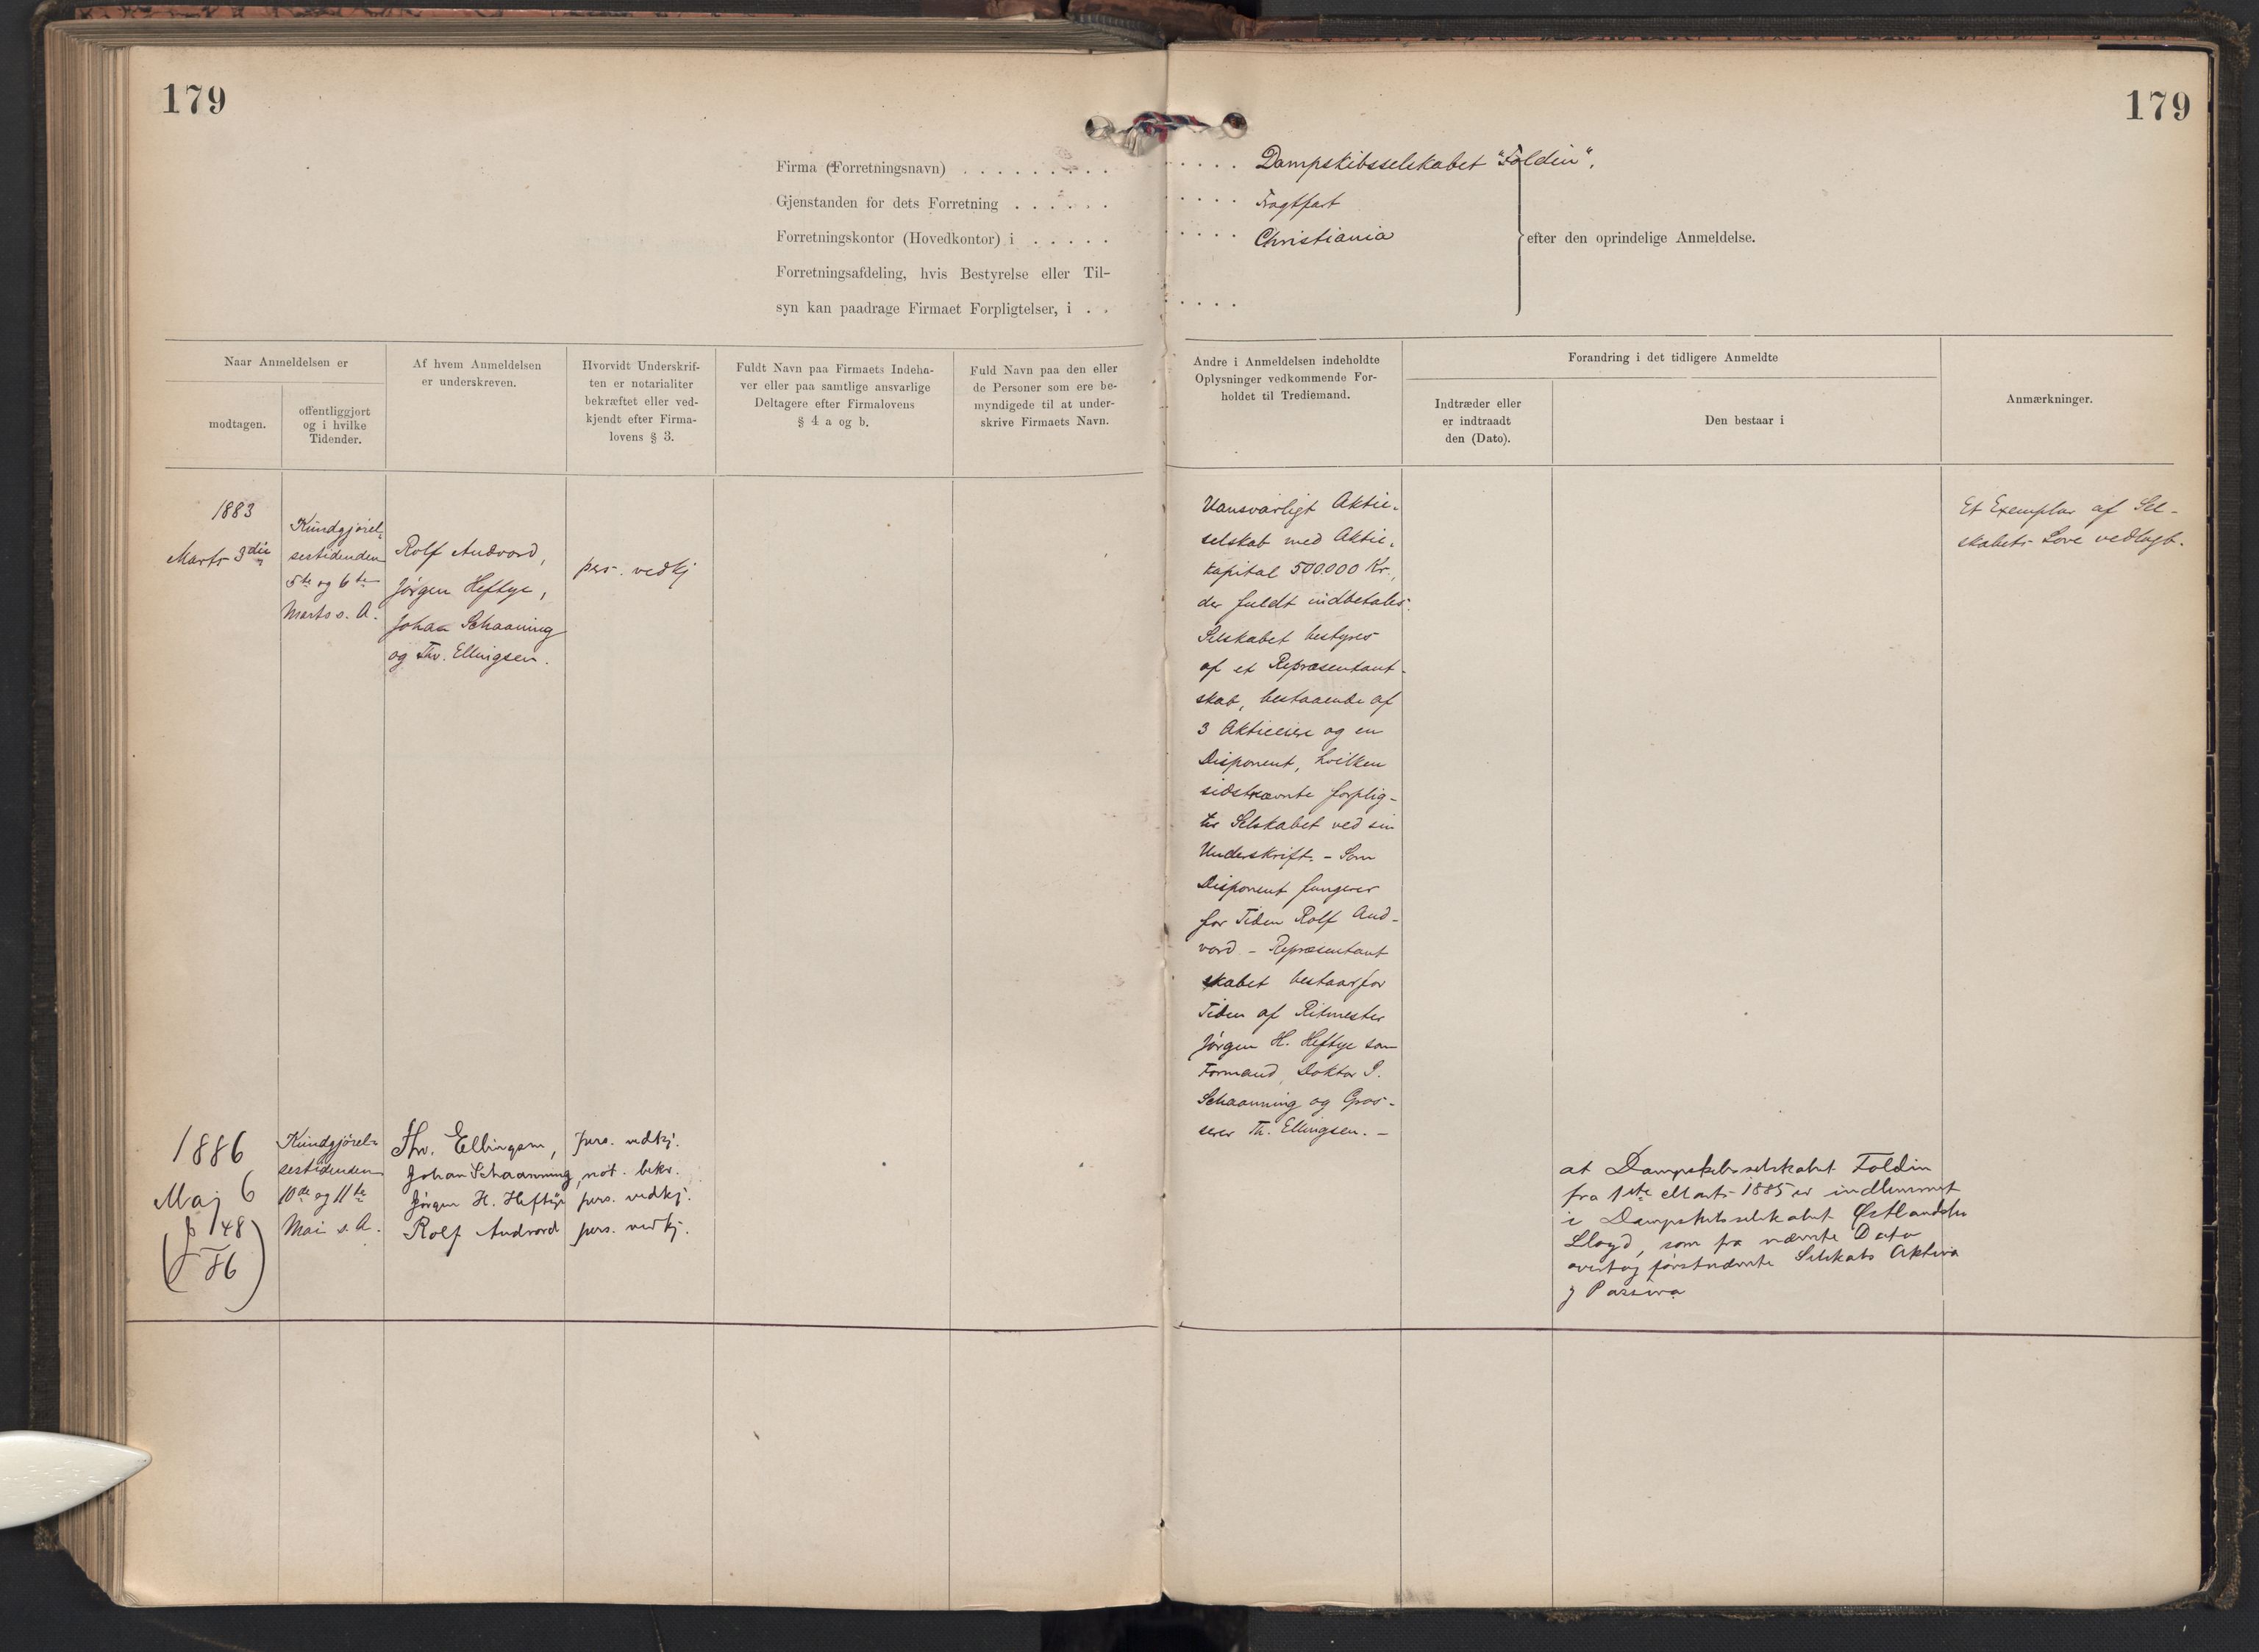 179
179
Firma (Forretningsnavn) . . . . . . . . . . . . . Dampskibsselskabet "Foldin".
Gjenstanden for dets Forretning . . . . . . . . . . Fragtfart
Forretningskontor (Hovedkontor) i . . . . . . . . . Christiania
efter den oprindelige Anmeldelse.
Forretningsafdeling, hvis Bestyrelse eller Til-
syn kan paadrage Firmaet Forpligtelser, i . . . . . .
Naar Anmeldelsen er
modtagen.
offentliggjort
og i hvilke
Tidender.
Af hvem Anmeldelsen
er underskreven.
Hvorvidt Underskrif-
ten er notarialiter
bekræftet eller ved-
kjendt efter Firma-
lovens § 3.
Fuldt Navn paa Firmaets Indeha-
ver eller paa samtlige ansvarlige
Deltagere efter Firmalovens
§ 4 a og b.
Fuld Navn paa den eller
de Personer som ere be-
myndigede til at under-
skrive Firmaets Navn.
Andre i Anmeldelsen indeholdte
Oplysninger vedkommende For-
holdet til Trediemand.
Forandring i det tidligere Anmeldte
Indtræder eller
er indtraadt
den (Dato).
Den bestaar i
Anmærkninger.
1883
Marts 3die
Kundgjørel-
sestidenden
5te og 6te
Marts s. A.
Rolf Andvord,
Jørgen Heftye,
Johan Schaaning
og Thv. Ellingsen.
pers. vedkj
Uansvarligt Aktie-
selskab med Aktie-
kapital 500.000 Kr.,
der fuldt indbetales.
Selskabet bestyres
af et Repræsentant-
skab, bestaaende af
3 Aktieeiere og en
Disponent, hvilken
sidstnævnte forplig-
ter Selskabet ved sin
Underskrift. - Som
Disponent fungerer
for Tiden Rolf And-
vord - Repræsentant
skabet bestaar for
Tiden af Ritmester
Jørgen H. Heftye som
Formand, Doktor J.
Schaanning og Gros-
serer Th. Ellingsen. -
Et Exemplar af Sel-
skabets Love vedlagt.
1886
Maj 6
(J 148
86)
Kundgjørel-
sestidenden
10de og 11te
Mai s. A.
Thv. Ellingsen, pers. vedkj.
Johan Schaanning, not. bekr.
Jørgen H. Heftye pers. vedkj.
Rolf Andvord pers. vedkj.
at Dampskibsselskabet Foldin
fra 1ste Marts 1885 er indlemmet
i Dampskibsselskabet Østlandske
Lloyd, som fra nævnte Dato
overtog førstnævnte Selskabs Aktiva
og Passiva